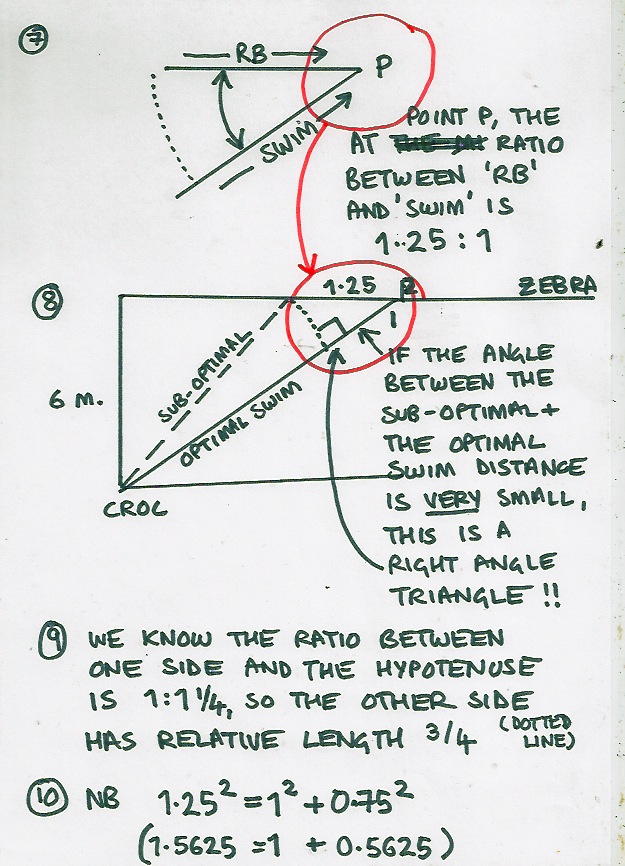 7
RB
P
SWIM
POINT P, THE
AT RATIO
BETWEEN 'RB'
AND 'SWIM' IS
1.25 : 1
8
1.25
ZEBRA
1
6 M.
SUB-OPTIMAL
OPTIMAL SWIM
CROC
IF THE ANGLE
BETWEEN THE
SUB-OPTIMAL +
THE OPTIMAL
SWIM DISTANCE
IS VERY SMALL,
THIS IS A
RIGHT ANGLE
TRIANGLE !!
9 WE KNOW THE RATIO BETWEEN
ONE SIDE AND THE HYPOTENUSE
IS 1:1 1/4, SO THE OTHER SIDE
HAS RELATIVE LENGTH 3/4 (DOTTED
LINE)
10 NB 1.25² = 1² + 0.75²
(1.5625 = 1 + 0.5625)